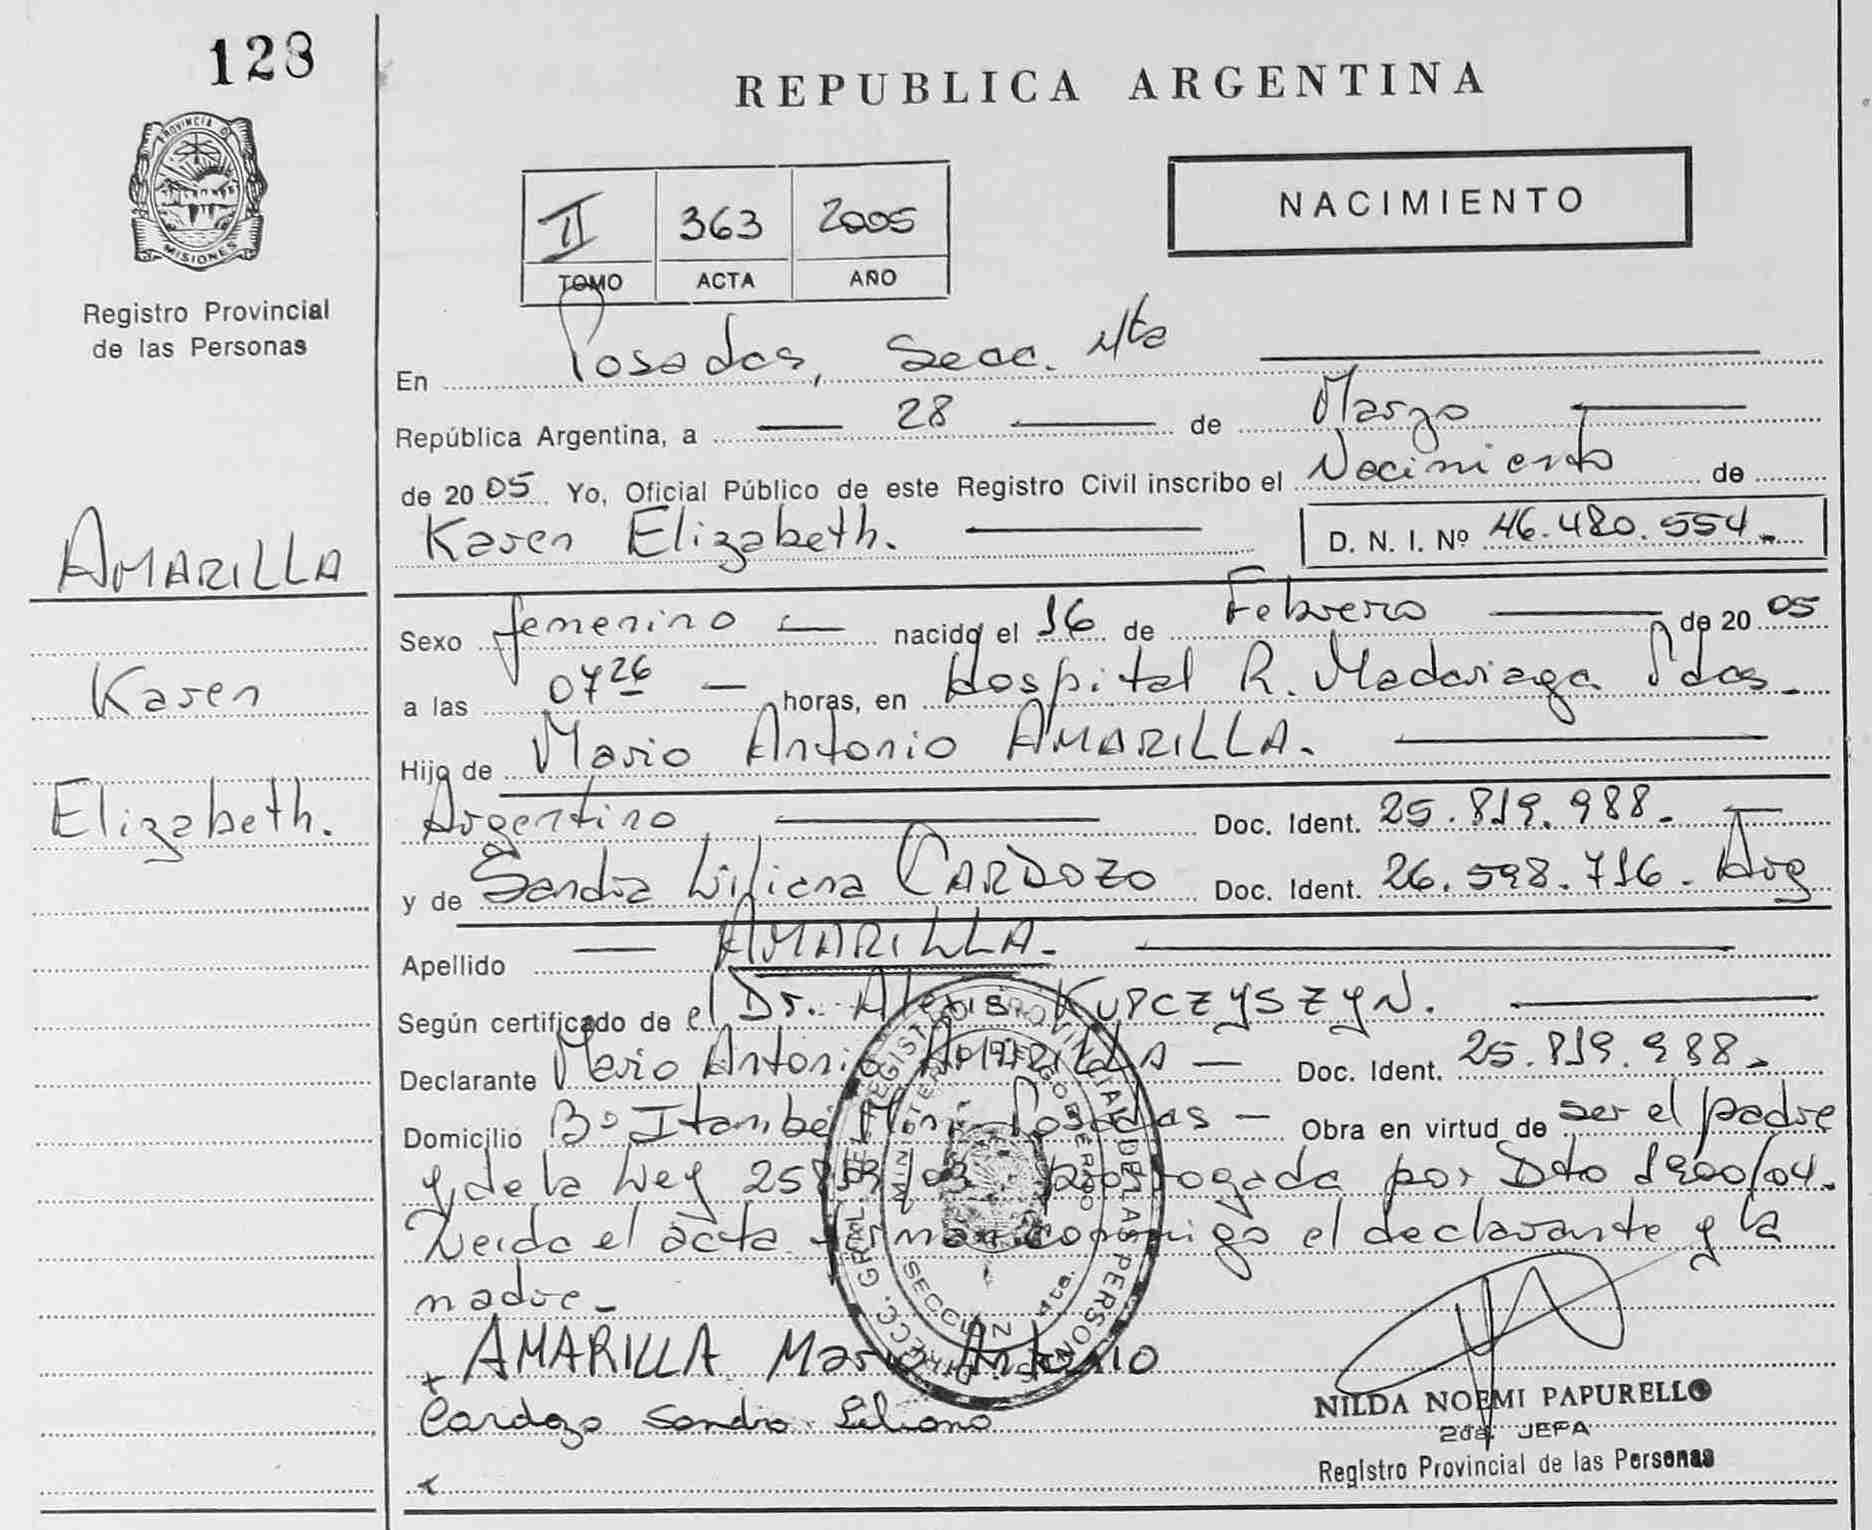 128
PROVINCIA D
MISIONES
Registro Provincial
de las Personas
AMARILLA
Karen
Elizabeth.
REPUBLICA ARGENTINA
NACIMIENTO
II 363 2005
TOMO ACTA AÑO
En Posadas, Secc. 4ta
República Argentina, a 28 de Marzo
de 20 05 Yo, Oficial Público de este Registro Civil inscribo el Nacimiento de
Karen Elizabeth. D. N. I. Nº 46.480.554.
Sexo femenino nacido el 16 de Febrero de 20 05
a las 07 26 horas, en Hospital R. Madariaga Pdas.
Hijo de Mario Antonio AMARILLA.
Argentino Doc. Ident. 25.819.988.
y de Sandra Liliana CARDOZO Doc. Ident. 26.598.716. Arg
Apellido AMARILLA.
Según certificado de el Dr. Alexis KUPCZYSZYN.
Declarante Mario Antonio AMARILLA Doc. Ident. 25.819.988.
Domicilio Bº Itambé Miní Posadas Obra en virtud de ser el padre
y de la Ley 25819/03 prorrogada por Dto 1900/04.
Leida el acta firman conmigo el declarante y la
madre.
DIRECC. GRAL. DEL REGISTRO PROVINCIAL DE LAS PERSONAS
MINISTERIO DE GOBIERNO
SECCION 4ta.
AMARILLA Mario Antonio
Cardozo Sandra Liliana
NILDA NOEMI PAPURELLO
2da. JEFA
Registro Provincial de las Personas